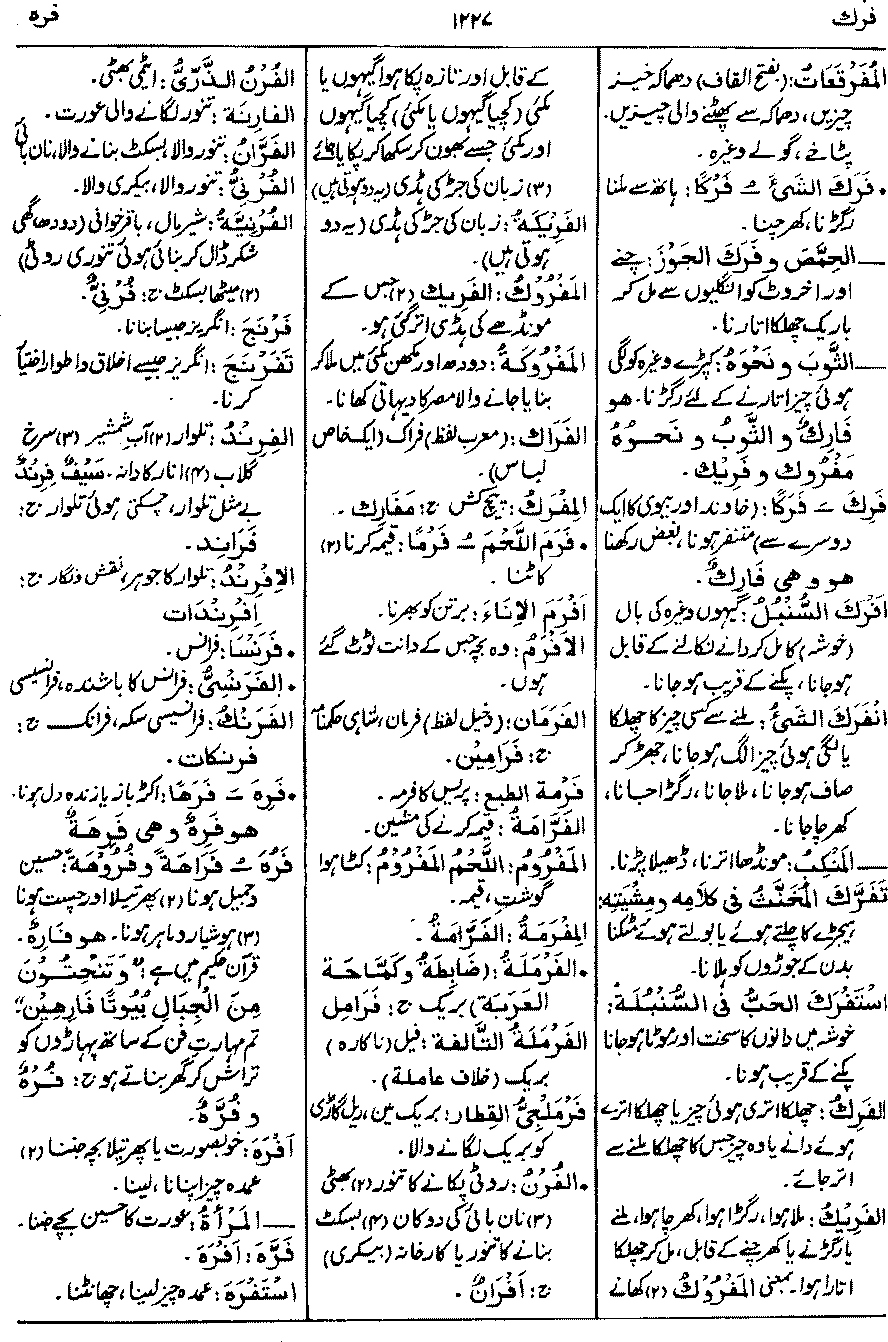 فرك
۱۲۲۷
فره
المُفَرْقَعَاتُ: (بفتح القاف) دھماکہ خیز
چیزیں، دھماکہ سے پھٹنے والی چیزیں.
پٹاخے، گولے وغیرہ.
• فَرَكَ الشَّيْءَ ـُ فَرْكًا: ہاتھ سے ملنا
رگڑنا، کھرچنا.
ــــ الحِمَّصَ و فَرَكَ الجَوْزَ: چنے
اور اخروٹ کو انگلیوں سے مل کر
باریک چھلکا اتارنا.
ــــ الثَّوبَ و نَحْوَهُ: کپڑے وغیرہ کو لگی
ہوئی چیز اتارنے کے لئے رگڑنا. هو
فَارِكٌ و الثَّوبُ و نَحْوُهُ
مَفْرُوك و فَرِيْك.
فَرِكَ ـَ فَرَكًا: (خاوند اور بیوی کا ایک
دوسرے سے) متنفر ہونا، بغض رکھنا
هو و هي فَارِكٌ.
اَفْرَكَ السُّنْبُلُ: گیہوں وغیرہ کی بال
(خوشہ) کا مل کر دانے نکالنے کے قابل
ہو جانا، پکنے کے قریب ہو جانا.
انْفَرَكَ الشَّيْءُ: ملنے سے کسی چیز کا چھلکا
یا لگی ہوئی چیز الگ ہو جانا، جھڑ کر
صاف ہو جانا، ملا جانا، رگڑا جانا،
کھرچا جانا.
ــــ المَنْكِبُ: مونڈھا اترنا، ڈھیلا پڑنا.
تَفَرَّكَ المُخَنَّثُ في كَلَامِه ومِشْيَتِهِ:
ہیجڑے کا چلتے ہوئے یا بولتے ہوئے مٹکنا
بدن کے جوڑوں کو ہلانا.
اسْتَفْرَكَ الحَبُّ في السُّنْبُلَة:
خوشہ میں دانوں کا سخت اور موٹا ہو جانا
پکنے کے قریب ہونا.
الفَرِكُ: چھلکا اتری ہوئی چیز یا چھلکا اترے
ہوئے دانے یا وہ چیز جس کا چھلکا ملنے سے
اتر جائے.
الفَرِيْكُ: ملا ہوا، رگڑا ہوا، کھرچا ہوا، ملنے
یا رگڑنے یا کھرچنے کے قابل، مل کر چھلکا
اتارا ہوا. بمعنی المَفْرُوْكُ (۲) کھانے
کے قابل اور تازہ پکا ہوا گیہوں یا
مکئی (کچیا گیہوں یا مکئی) کچیا گیہوں
اور مکئی جسے بھون کر سکھا کر پکایا جائے
(۳) زبان کی جڑ کی ہڈی (یہ دو ہوتی ہیں)
الفَرِيْكَةُ: زبان کی جڑ کی ہڈی (یہ دو
ہوتی ہیں).
المَفْرُوكُ: الفَرِيك (۲) جس کے
مونڈھے کی ہڈی اتر گئی ہو.
المَفْرُوكَةُ: دودھ اور مکھن مکئی میں ملا کر
بنایا جانے والا مصر کا دیہاتی کھانا.
الفَرَاك: (معرب لفظ) فراک (ایک خاص
لباس).
المِفْرَكُ: پیچ کش ج: مَفَارِك.
• فَرَمَ اللَّحْمَ ـُ فَرْمًا: قیمہ کرنا (۲)
کاٹنا.
اَفْرَمَ الإِنَاءَ: برتن کو بھرنا.
الأَفْرَمُ: وہ بچہ جس کے دانت ٹوٹ گئے
ہوں.
الفَرَمَان: (دخیل لفظ) فرمان، شاہی حکمنامہ
ج: فَرَامِيْن.
فَرْمَة الطبع: پریس کا فرمہ.
الفَرَّامَةُ: قیمہ کرنے کی مشین.
المَفْرُومُ: اللَّحْمُ المَفْرُوْمُ: کٹا ہوا
گوشت، قیمہ.
المِفْرَمَةُ: الفَرَّامَةُ.
• الفَرْمَلَةُ: (ضَابِطَةُ وكَمَّاحَة
العَرَبَة) بریک ج: فَرَامِل
الفَرْمَلَةُ التَّالِفة: فیل (ناکارہ)
بریک (خلاف عاملة).
فَرْمَلْجِيُّ القِطَار: بریک مین، ریل گاڑی
کو بریک لگانے والا.
• الفُرْنُ: روٹی پکانے کا تنور (۲) بھٹی
(۳) نان بائی کی دوکان (۴) بسکٹ
بنانے کا تنور یا کارخانہ (بیسکری)
ج: اَفْرَانٌ.
الفُرْنُ الذَّرِّيُّ: ایٹمی بھٹی.
الفَارِنَة: تنور لگانے والی عورت.
الفَرَّانُ: تنور والا، بسکٹ بنانے والا، نان بائی
الفُرْنِيُّ: تنور والا، بیکری والا.
الفُرْنِيَّةُ: شیر مال، باقر خوانی (دودھ، گھی
شکر ڈال کر بنائی ہوئی تنوری روٹی)
(۲) میٹھا بسکٹ ج: فُرْنِيٌّ.
فَرْنَجَ: انگریز جیسا بنانا.
تَفَرْنَجَ: انگریز جیسے اخلاق و اطوار اختیار
کرنا.
الفِرِنْدُ: تلوار (۲) آب شمشیر (۳) سرخ
گلاب (۴) انار کا دانہ. سَيْفٌ فِرِنْدٌ
بے مثل تلوار، چمکتی ہوئی تلوار ج:
فَرَانِد.
الاِفْرِنْدُ: تلوار کا جوہر، نقش و نگار ج:
اِفْرِنْدَات
• فَرَنْسَا: فرانس.
• الفَرَنْسِيُّ: فرانس کا باشندہ، فرانسیسی
الفَرَنْكُ: فرانسیسی سکہ، فرانک ــــ ج:
فرنكات.
• فَرِهَ ـَ فَرَهًا: اکڑ باز یا زندہ دل ہونا.
هو فَرِهٌ و هي فَرِهَةٌ
فَرُهَ ـُ فَرَاهَةً و فُرُوْهَةً: حسین
و جمیل ہونا (۲) پھرتیلا اور چست ہونا
(۳) ہوشیار و ماہر ہونا. هو فَارِهٌ.
قرآن حکیم میں ہے: "وَتَنْحِتُوْنَ
مِنَ الْجِبَالِ بُيُوتًا فَارِهِيْنَ"
تم مہارتِ فن کے ساتھ پہاڑوں کو
تراش کر گھر بناتے ہو ج: فُرْهٌ
و فُرَّهٌ.
اَفْرَهَ: خوبصورت یا پھرتیلا بچہ جننا (۲)
عمدہ چیز اپنانا، لینا.
ــــ المَرْأَةُ: عورت کا حسین بچے جننا.
فَرَّهَ: اَفْرَهَ.
اسْتَفْرَهَ: عمدہ چیز لینا، چھانٹنا.